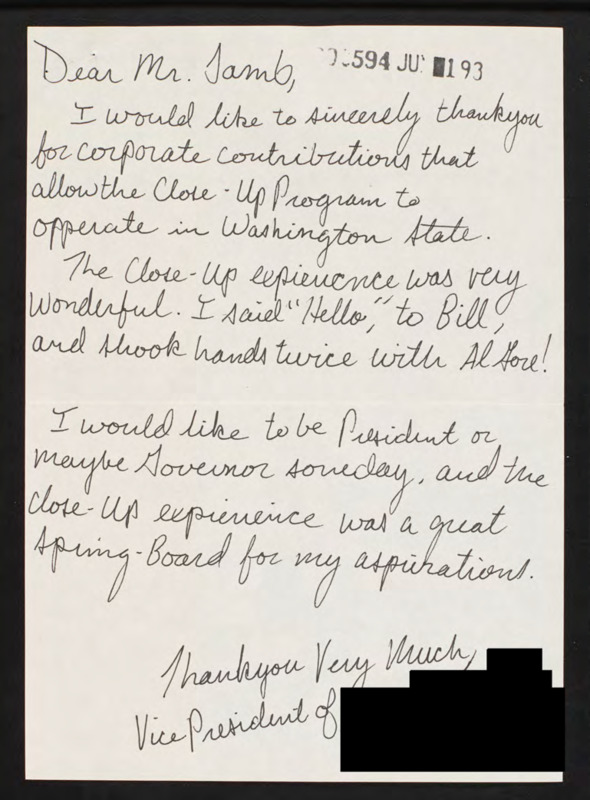 Dear Mr. Lamb,
594 JU 193
I would like to sincerely thankyou
for corporate contributions that
allow the Close-Up Program to
opperate in Washington State.
The Close-Up expierience was very
wonderful. I said "Hello," to Bill,
and shook hands twice with Al Gore!
I would like to be President or
maybe Governor someday, and the
Close-Up expierience was a great
Spring-Board for my aspirations.
Thankyou Very Much,
Vice President of